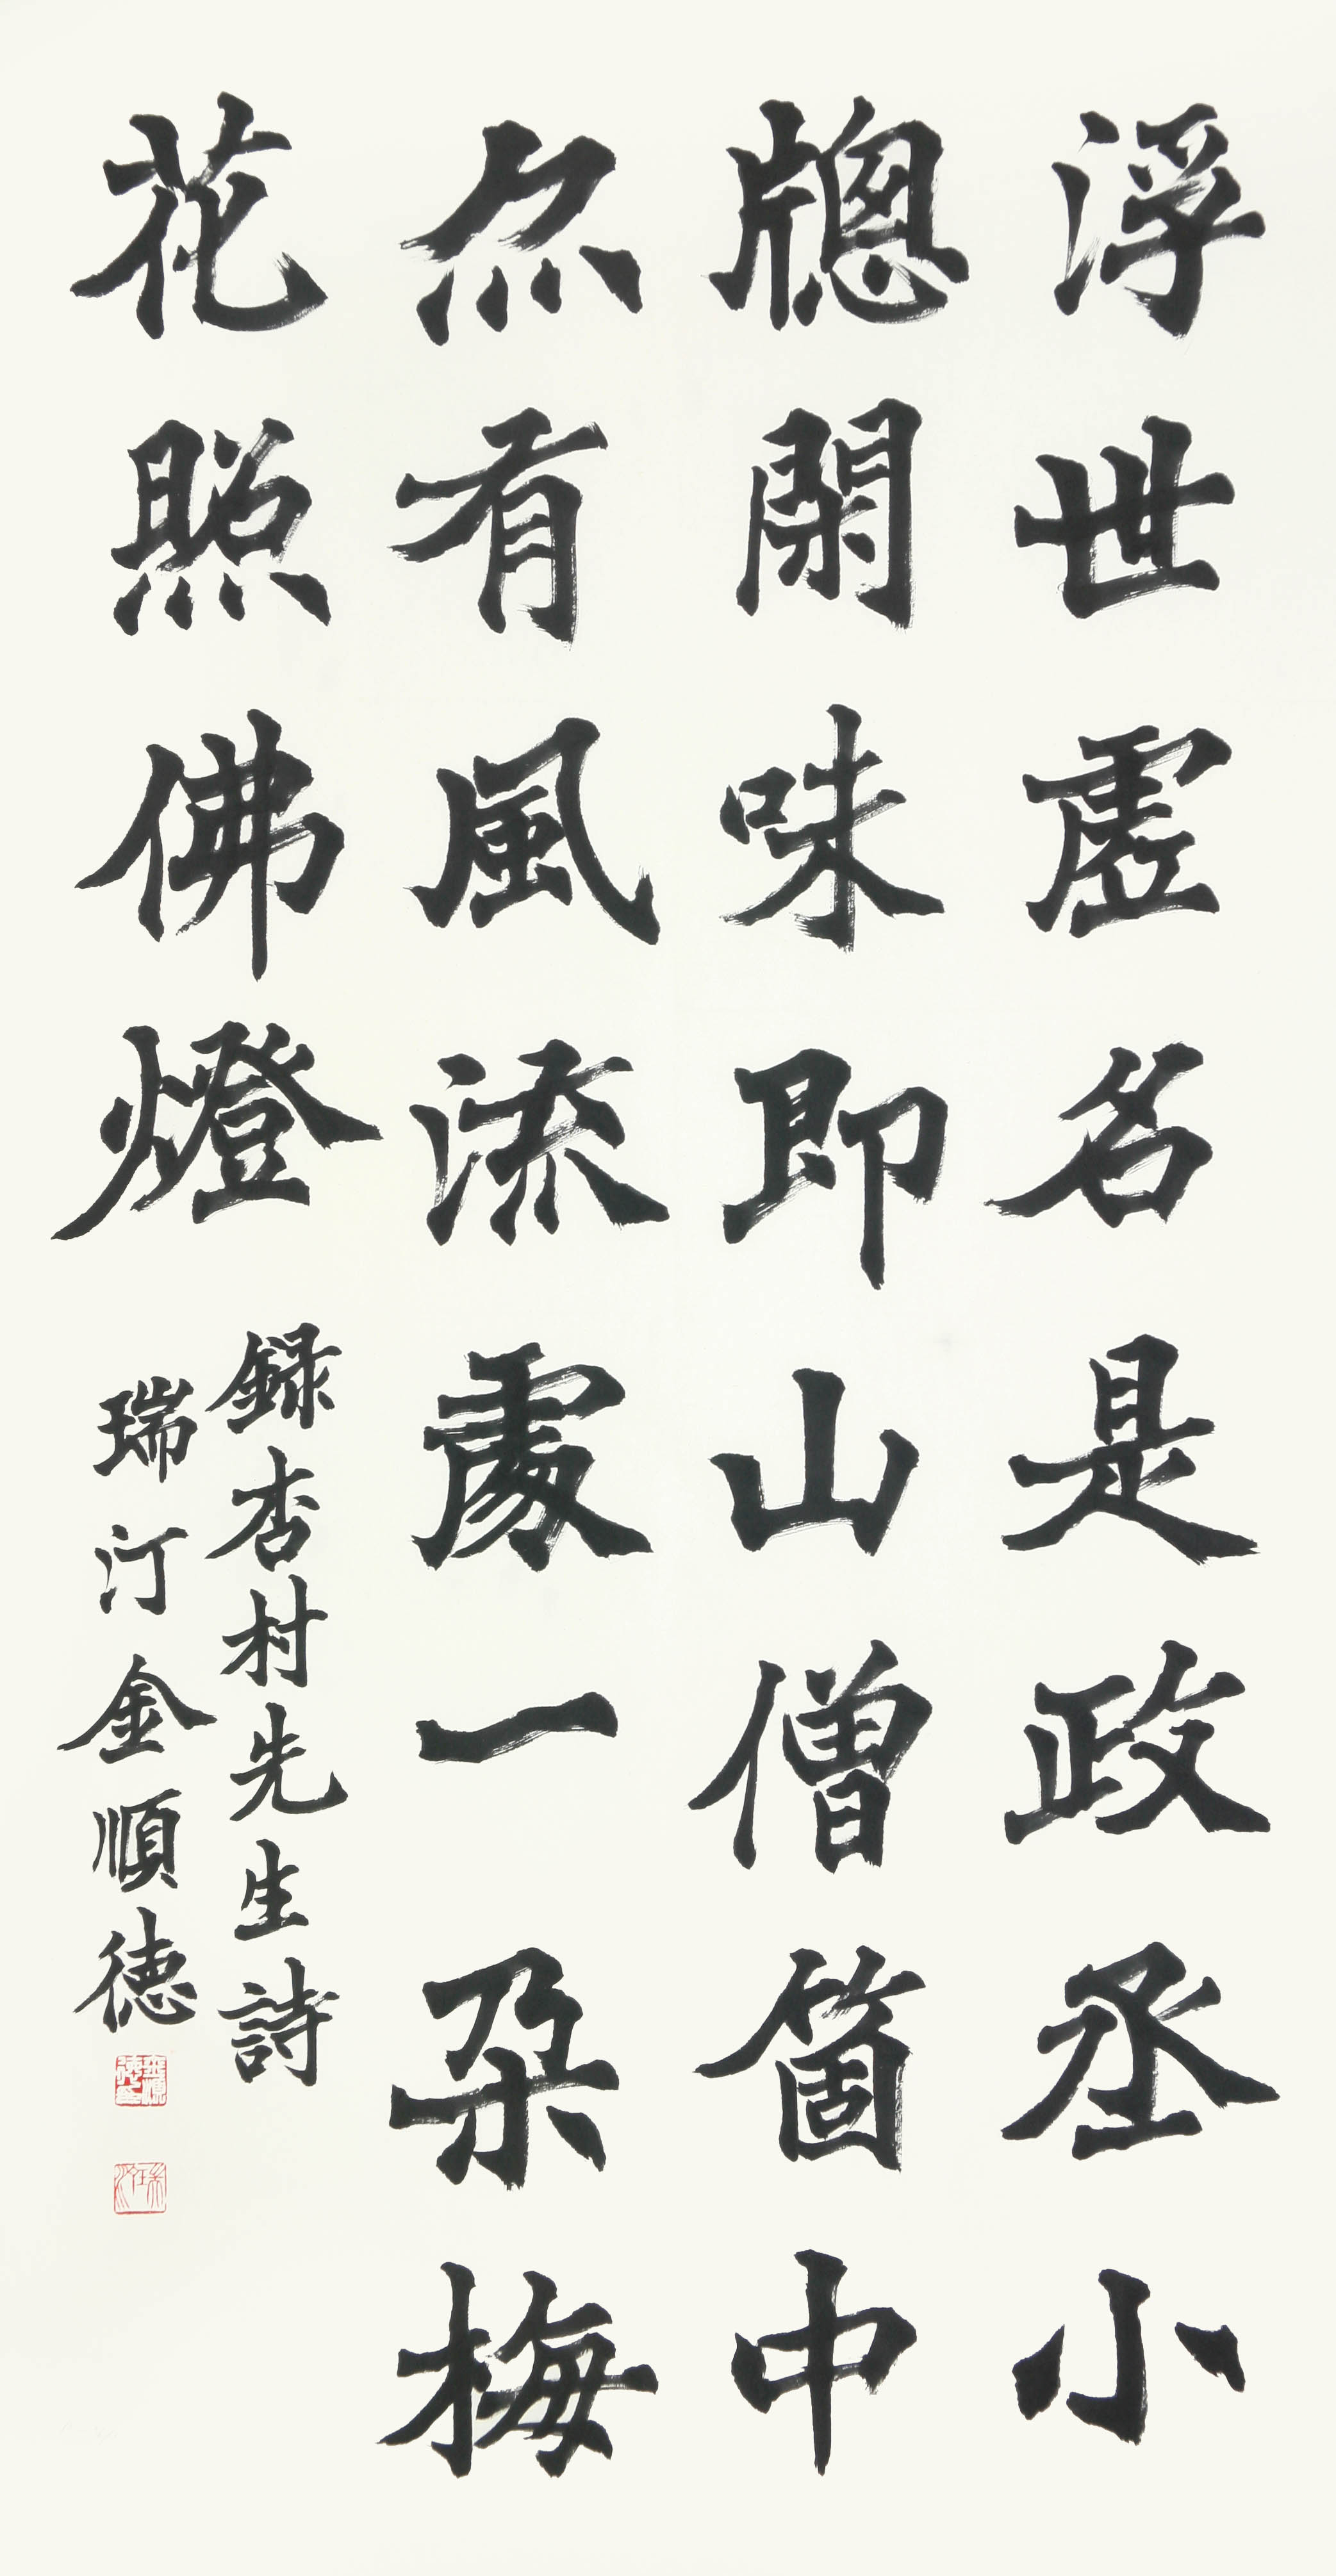 浮世虛名是政丞小
牕閑味即山僧箇中
亦有風流處一朶梅
花照佛燈
録杏村先生詩
瑞汀金順德
金順德印
瑞汀